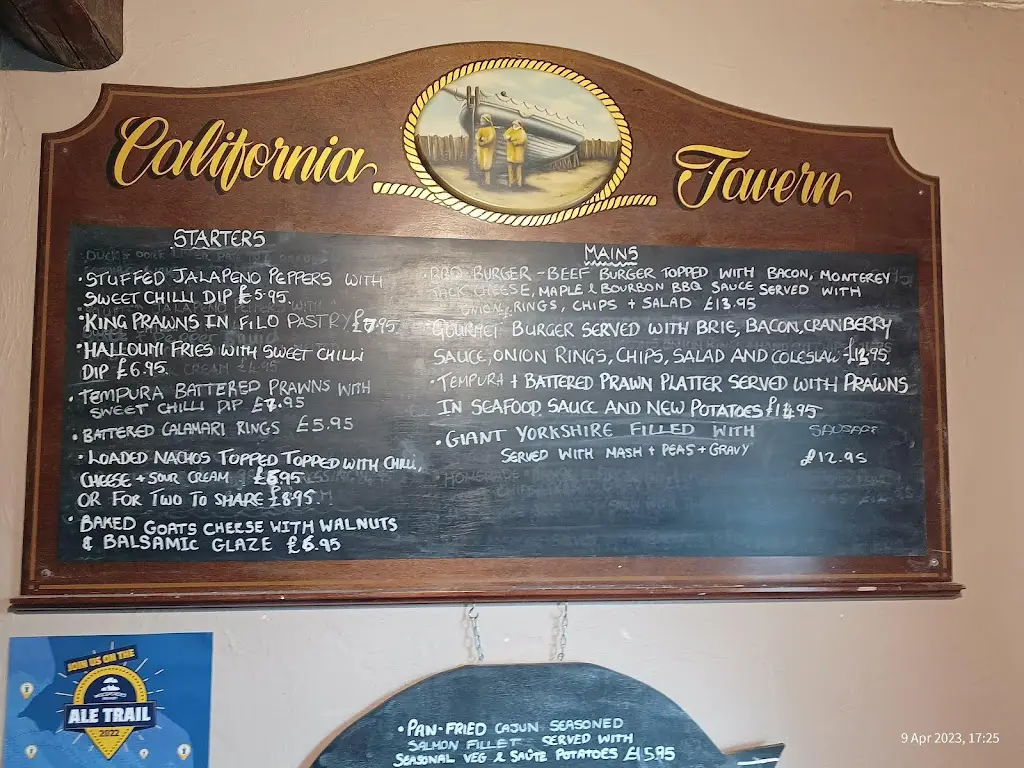 California Tavern
STARTERS
• STUFFED JALAPENO PEPPERS WITH
SWEET CHILLI DIP £5.95.
• KING PRAWNS IN FILO PASTRY £7.95
• HALLOUMI FRIES WITH SWEET CHILLI
DIP £6.95.
• TEMPURA BATTERED PRAWNS WITH
SWEET CHILLI DIP £7.95
• BATTERED CALAMARI RINGS £5.95
• LOADED NACHOS TOPPED TOPPED WITH CHILLI,
CHEESE + SOUR CREAM £6.95
OR FOR TWO TO SHARE £8.95
• BAKED GOATS CHEESE WITH WALNUTS
& BALSAMIC GLAZE £6.95
MAINS
• BBQ BURGER - BEEF BURGER TOPPED WITH BACON, MONTEREY
JACK CHEESE, MAPLE & BOURBON BBQ SAUCE SERVED WITH
ONION RINGS, CHIPS + SALAD £13.95
• GOURMET BURGER SERVED WITH BRIE, BACON, CRANBERRY
SAUCE, ONION RINGS, CHIPS, SALAD AND COLESLAW
• TEMPURA + BATTERED PRAWN PLATTER SERVED WITH PRAWNS
IN SEAFOOD SAUCE AND NEW POTATOES £14.95
• GIANT YORKSHIRE FILLED WITH SAUSAGE
SERVED WITH MASH + PEAS + GRAVY £12.95
• PAN-FRIED CAJUN SEASONED
SALMON FILLET SERVED WITH
SEASONAL VEG & SAUTE POTATOES £15.95
JOIN US ON THE
ALE TRAIL
2022
9 Apr 2023, 17:25